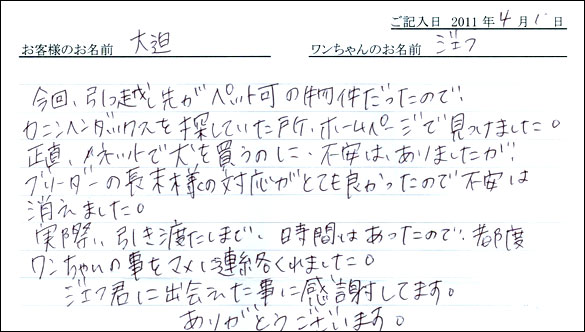 ご記入日 2011年4月1日
お客様のお名前 大迫 ワンちゃんのお名前 ジェフ
今回、引っ越し先がペット可の物件だったので、
カニンヘンダックスを探していた所、ホームページで見つけました。
正直、ネットで犬を買うのに、不安は、ありましたが、
ブリーダーの長末様の対応がとても良かったので不安は
消えました。
実際、引き渡しまで、時間はあったので、都度
ワンちゃんの事をマメに連絡くれました。
ジェフ君に出会えた事に感謝してます。
ありがとうございます。